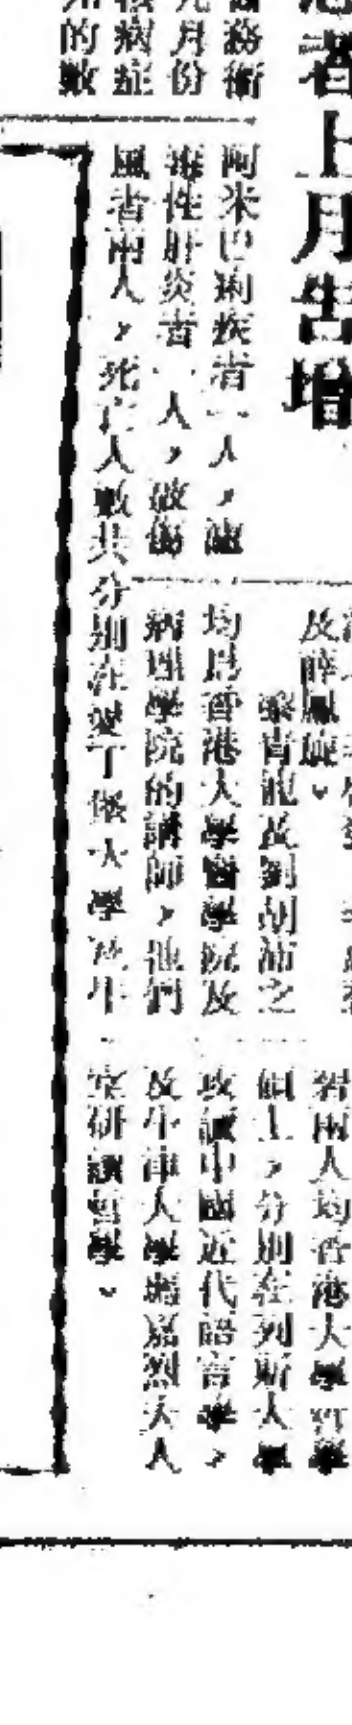 者上月告增
務衞
九月份
病症
的數
阿米巴痢疾者一人，濾
毒性肝炎者一人，破傷
風者兩人，死亡人數共
及薛鳳旋。
黎青龍及劉胡沛之
均爲香港大學醫學院及
病理學院的講師，他們
分別在愛丁堡大學及牛
兩人均香港大學哲學
上，分別在列斯大學
攻讀中國近代語言學，
及牛津大學瑪嘉烈夫人
堂研讀哲學。